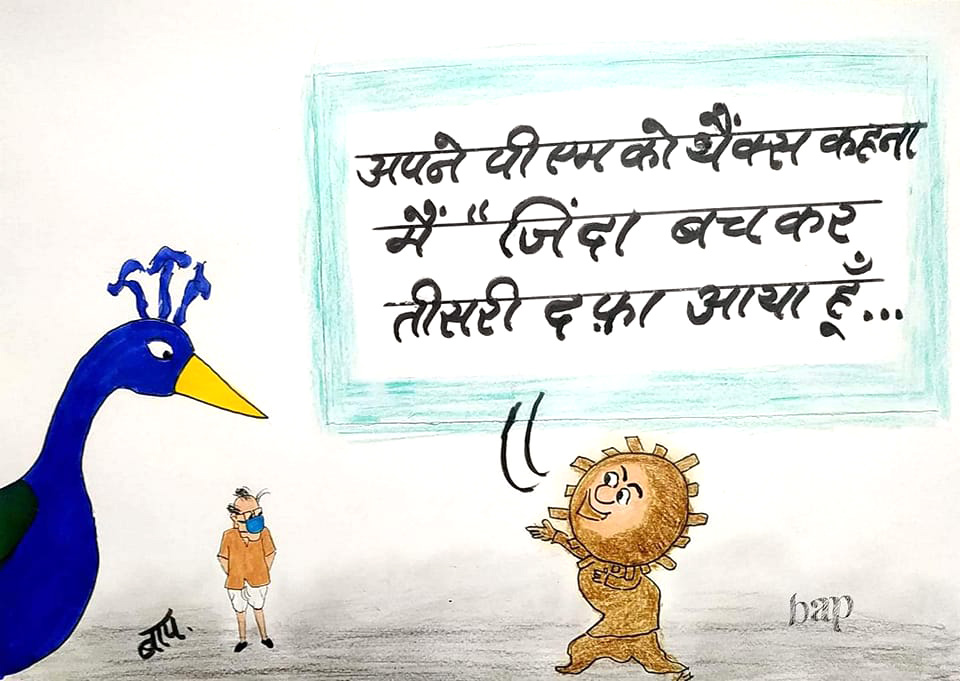 अपने पीएम को थैंक्स कहना
मैं "जिंदा बचकर
तीसरी दफ़ा आया हूँ...
बाप.
bap